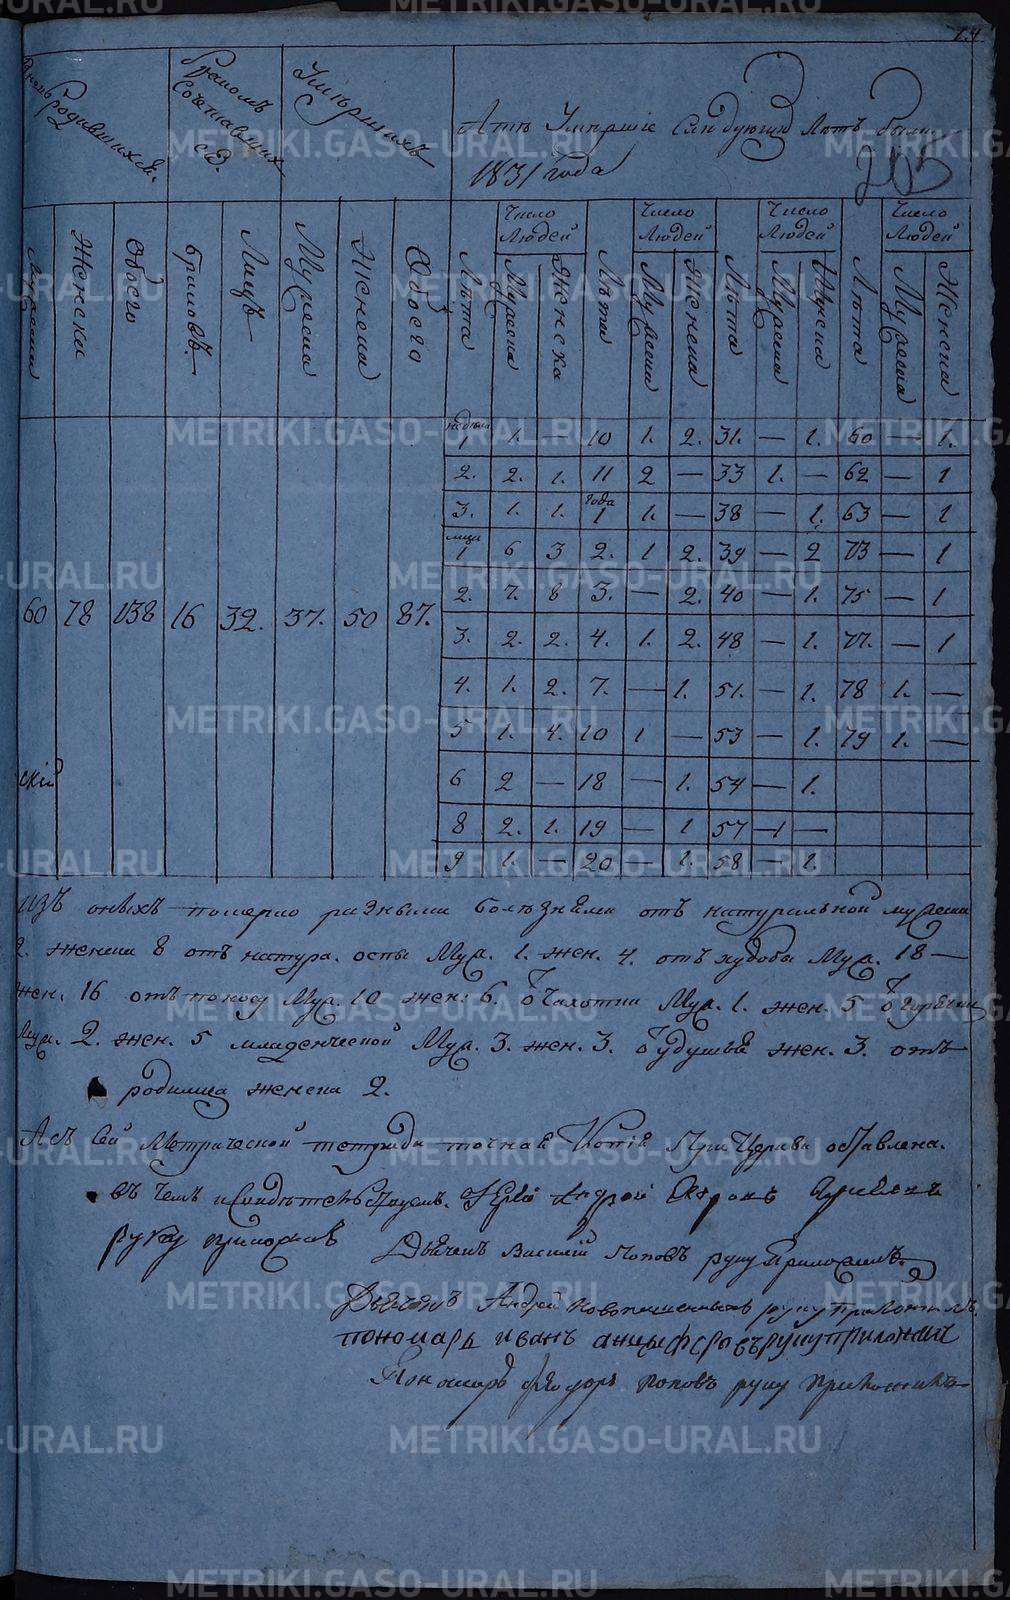 24
Родившихся.
Бракомъ Сочетавших ся.
Умершихъ
Лѣтъ Умершіе Слѣдующихъ Лѣтъ были
1831 года
203
Число Людей Число Людей Число Людей Число Людей
Мужеска Женска Обоего Браковъ. Лицъ Мужеска Женска Обоего Лѣта Мужеска Женска Лѣта Мужеска Женска Лѣта Мужеска Женска Лѣта Мужеска Женска
недѣли 1 1. — 10 1. 2. 31. — 1. 60 — 1.
2. 2. 1. 11 2 — 33 1. — 62 — 1
3. 1. 1. года 1 1. — 38 — 1. 63 — 1
мца 1 6 3 2. 1 2. 39 — 2 73 — 1
2. 7. 8 3. — 2. 40 — 1. 75 — 1
60 78 138 16 32. 37. 50 87.
3. 2. 2. 4. 1. 2. 48 — 1. 77. — 1
4. 1. 2. 7. — 1. 51. — 1. 78 1. —
5 1. 4. 10 1 — 53 — 1. 79 1. —
скій
6 2 — 18 — 1. 54 — 1.
8 2. 1. 19 — 1 57 1 —
9 1. — 20 — 1. 58 — 1.
изъ оныхъ померло разными болѣзнями отъ натуральной мужеска
2. женска 8 отъ натура. оспы Муж. 1. жен. 4. отъ худобы Муж. 18 —
жен. 16 отъ поносу Муж. 10 жен. 6. Чахотки Муж. 1. жен. 5 горячки
Муж. 2. жен. 5 младенческой Муж. 3. жен. 3. удушья жен. 3. отъ
родимца женска 2.
Сей Метрической тетради точная Копія При Церкви оставлена.
въ чемъ и Свидѣтельствуемъ. Іерей Андрей
руку приложилъ Дьяконъ Василій Поповъ руку Приложилъ.
Дьячекъ Андрей руку приложилъ.
пономарь иванъ анцыферовъ руку приложилъ
Пономарь Ѳедоръ поповъ руку приложилъ
METRIKI.GASO-URAL.RU